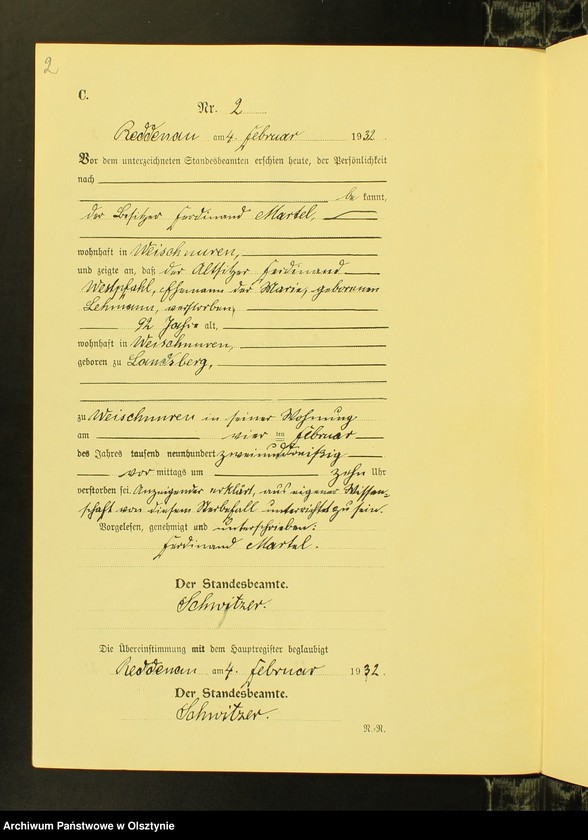 2
C.
Nr. 2
Reddenau am 4. Februar 1932
Vor dem unterzeichneten Standesbeamten erschien heute, der Persönlichkeit
nach
be kannt,
der Besitzer Ferdinand Martel,
wohnhaft in Weischnuren,
und zeigte an, daß der Altsitzer Ferdinand
Westpfahl, Ehemann der Marie, geborenen
Lehmann, verstorben,
92 Jahre alt,
wohnhaft in Weischnuren,
geboren zu Landsberg,
zu Weischnuren in seiner Wohnung
am vier ten Februar
des Jahres tausend neunhundert zweiunddreißig
vor mittags um zehn Uhr
verstorben sei. Anzeigender erklärt, aus eigener Wissen-
schaft von diesem Sterbefall unterrichtet zu sein.
Vorgelesen, genehmigt und unterschrieben:
Ferdinand Martel.
Der Standesbeamte.
Schwitzer.
Die Übereinstimmung mit dem Hauptregister beglaubigt
Reddenau am 4. Februar 1932.
Der Standesbeamte.
Schwitzer.
R.-R.
Archiwum Państwowe w Olsztynie